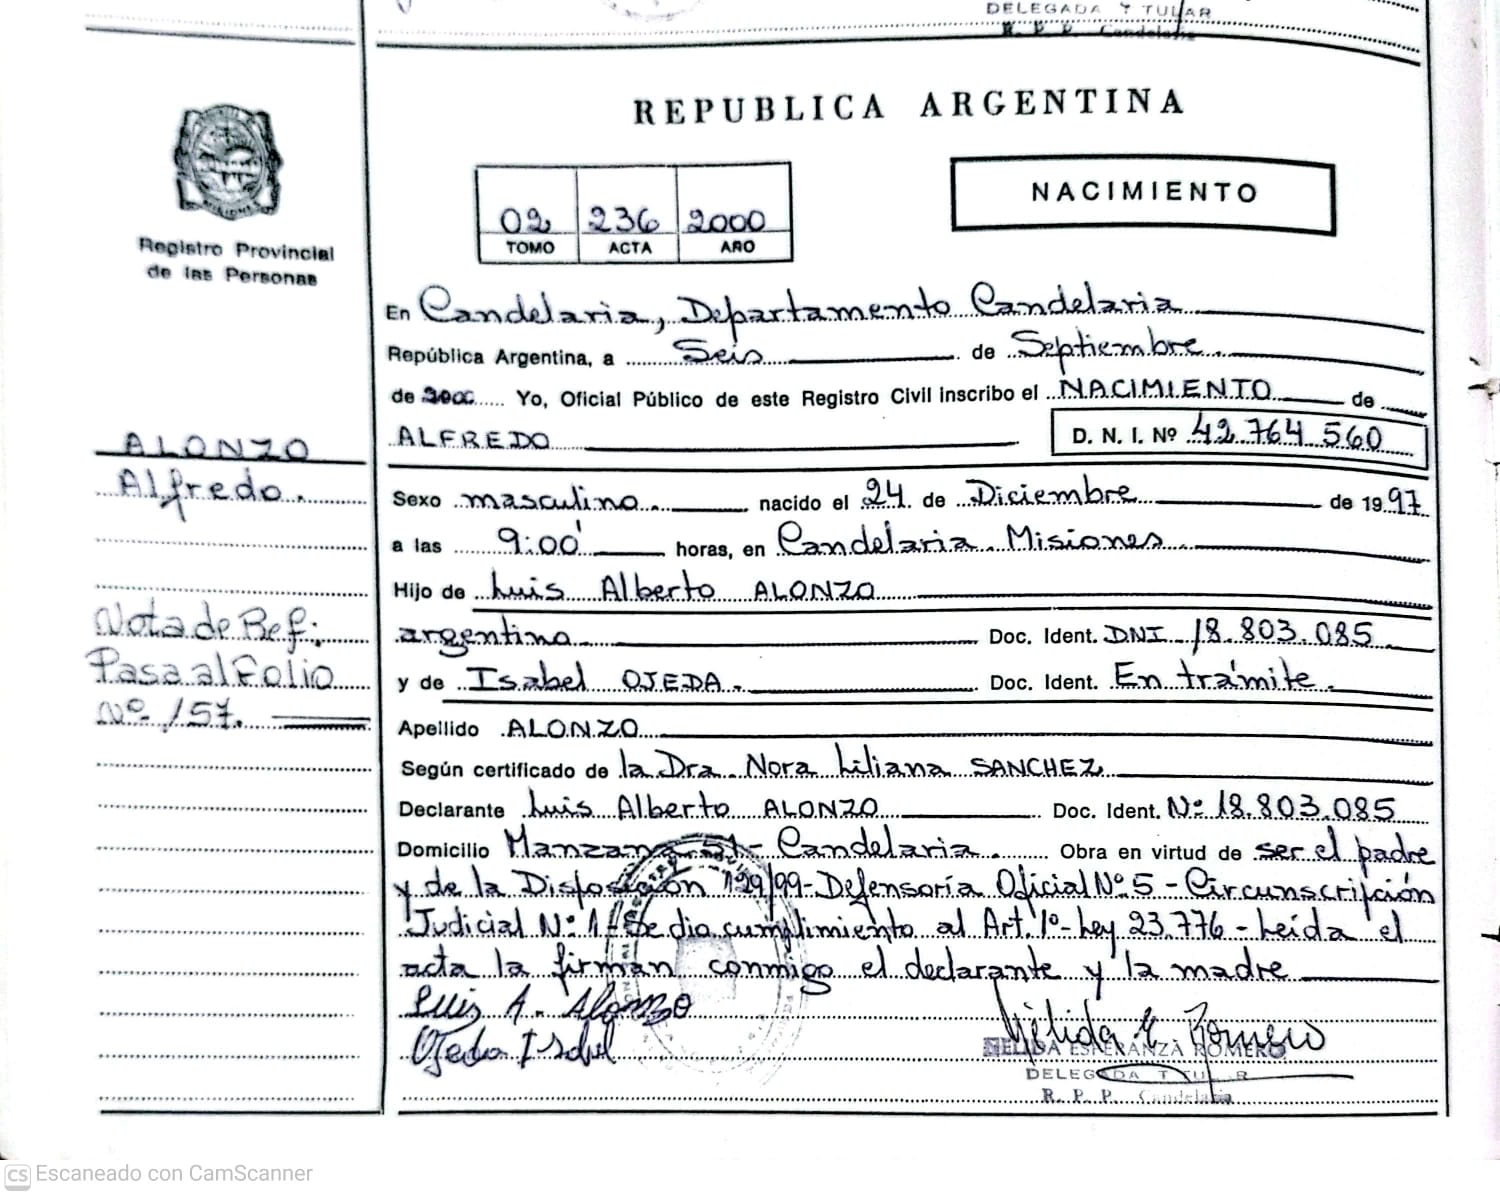 DELEGADA Y TULAR
R. P. P. Candelaria
REPUBLICA ARGENTINA
NACIMIENTO
02 236 2000
TOMO ACTA AÑO
Registro Provincial
de las Personas
En Candelaria, Departamento Candelaria
República Argentina, a Seis de Septiembre.
de 2000 Yo, Oficial Público de este Registro Civil inscribo el NACIMIENTO de
ALFREDO D. N. I. Nº 42.764.560
ALONZO
Alfredo.
Sexo masculino. nacido el 24 de Diciembre de 1997
a las 9:00 horas, en Candelaria. Misiones.
Hijo de Luis Alberto ALONZO
argentino Doc. Ident. DNI 18.803.085
y de Isabel OJEDA. Doc. Ident. En trámite.
Nota de Ref:
Pasa al Folio
Nº 157.
Apellido ALONZO
Según certificado de la Dra. Nora Liliana SANCHEZ
Declarante Luis Alberto ALONZO Doc. Ident. Nº 18.803.085
Domicilio Manzana 51 - Candelaria. Obra en virtud de ser el padre
y de la Disposición 129/99 - Defensoría Oficial Nº 5 - Circunscripción
Judicial Nº 1 - Se dio cumplimiento al Art. 1º - Ley 23.776 - Leída el
acta la firman conmigo el declarante y la madre
Luis A. Alonzo
Ojeda Isabel
Nélida E. Romero
NELIDA ESPERANZA ROMERO
DELEGADA TITULAR
R. P. P. Candelaria
CS Escaneado con CamScanner